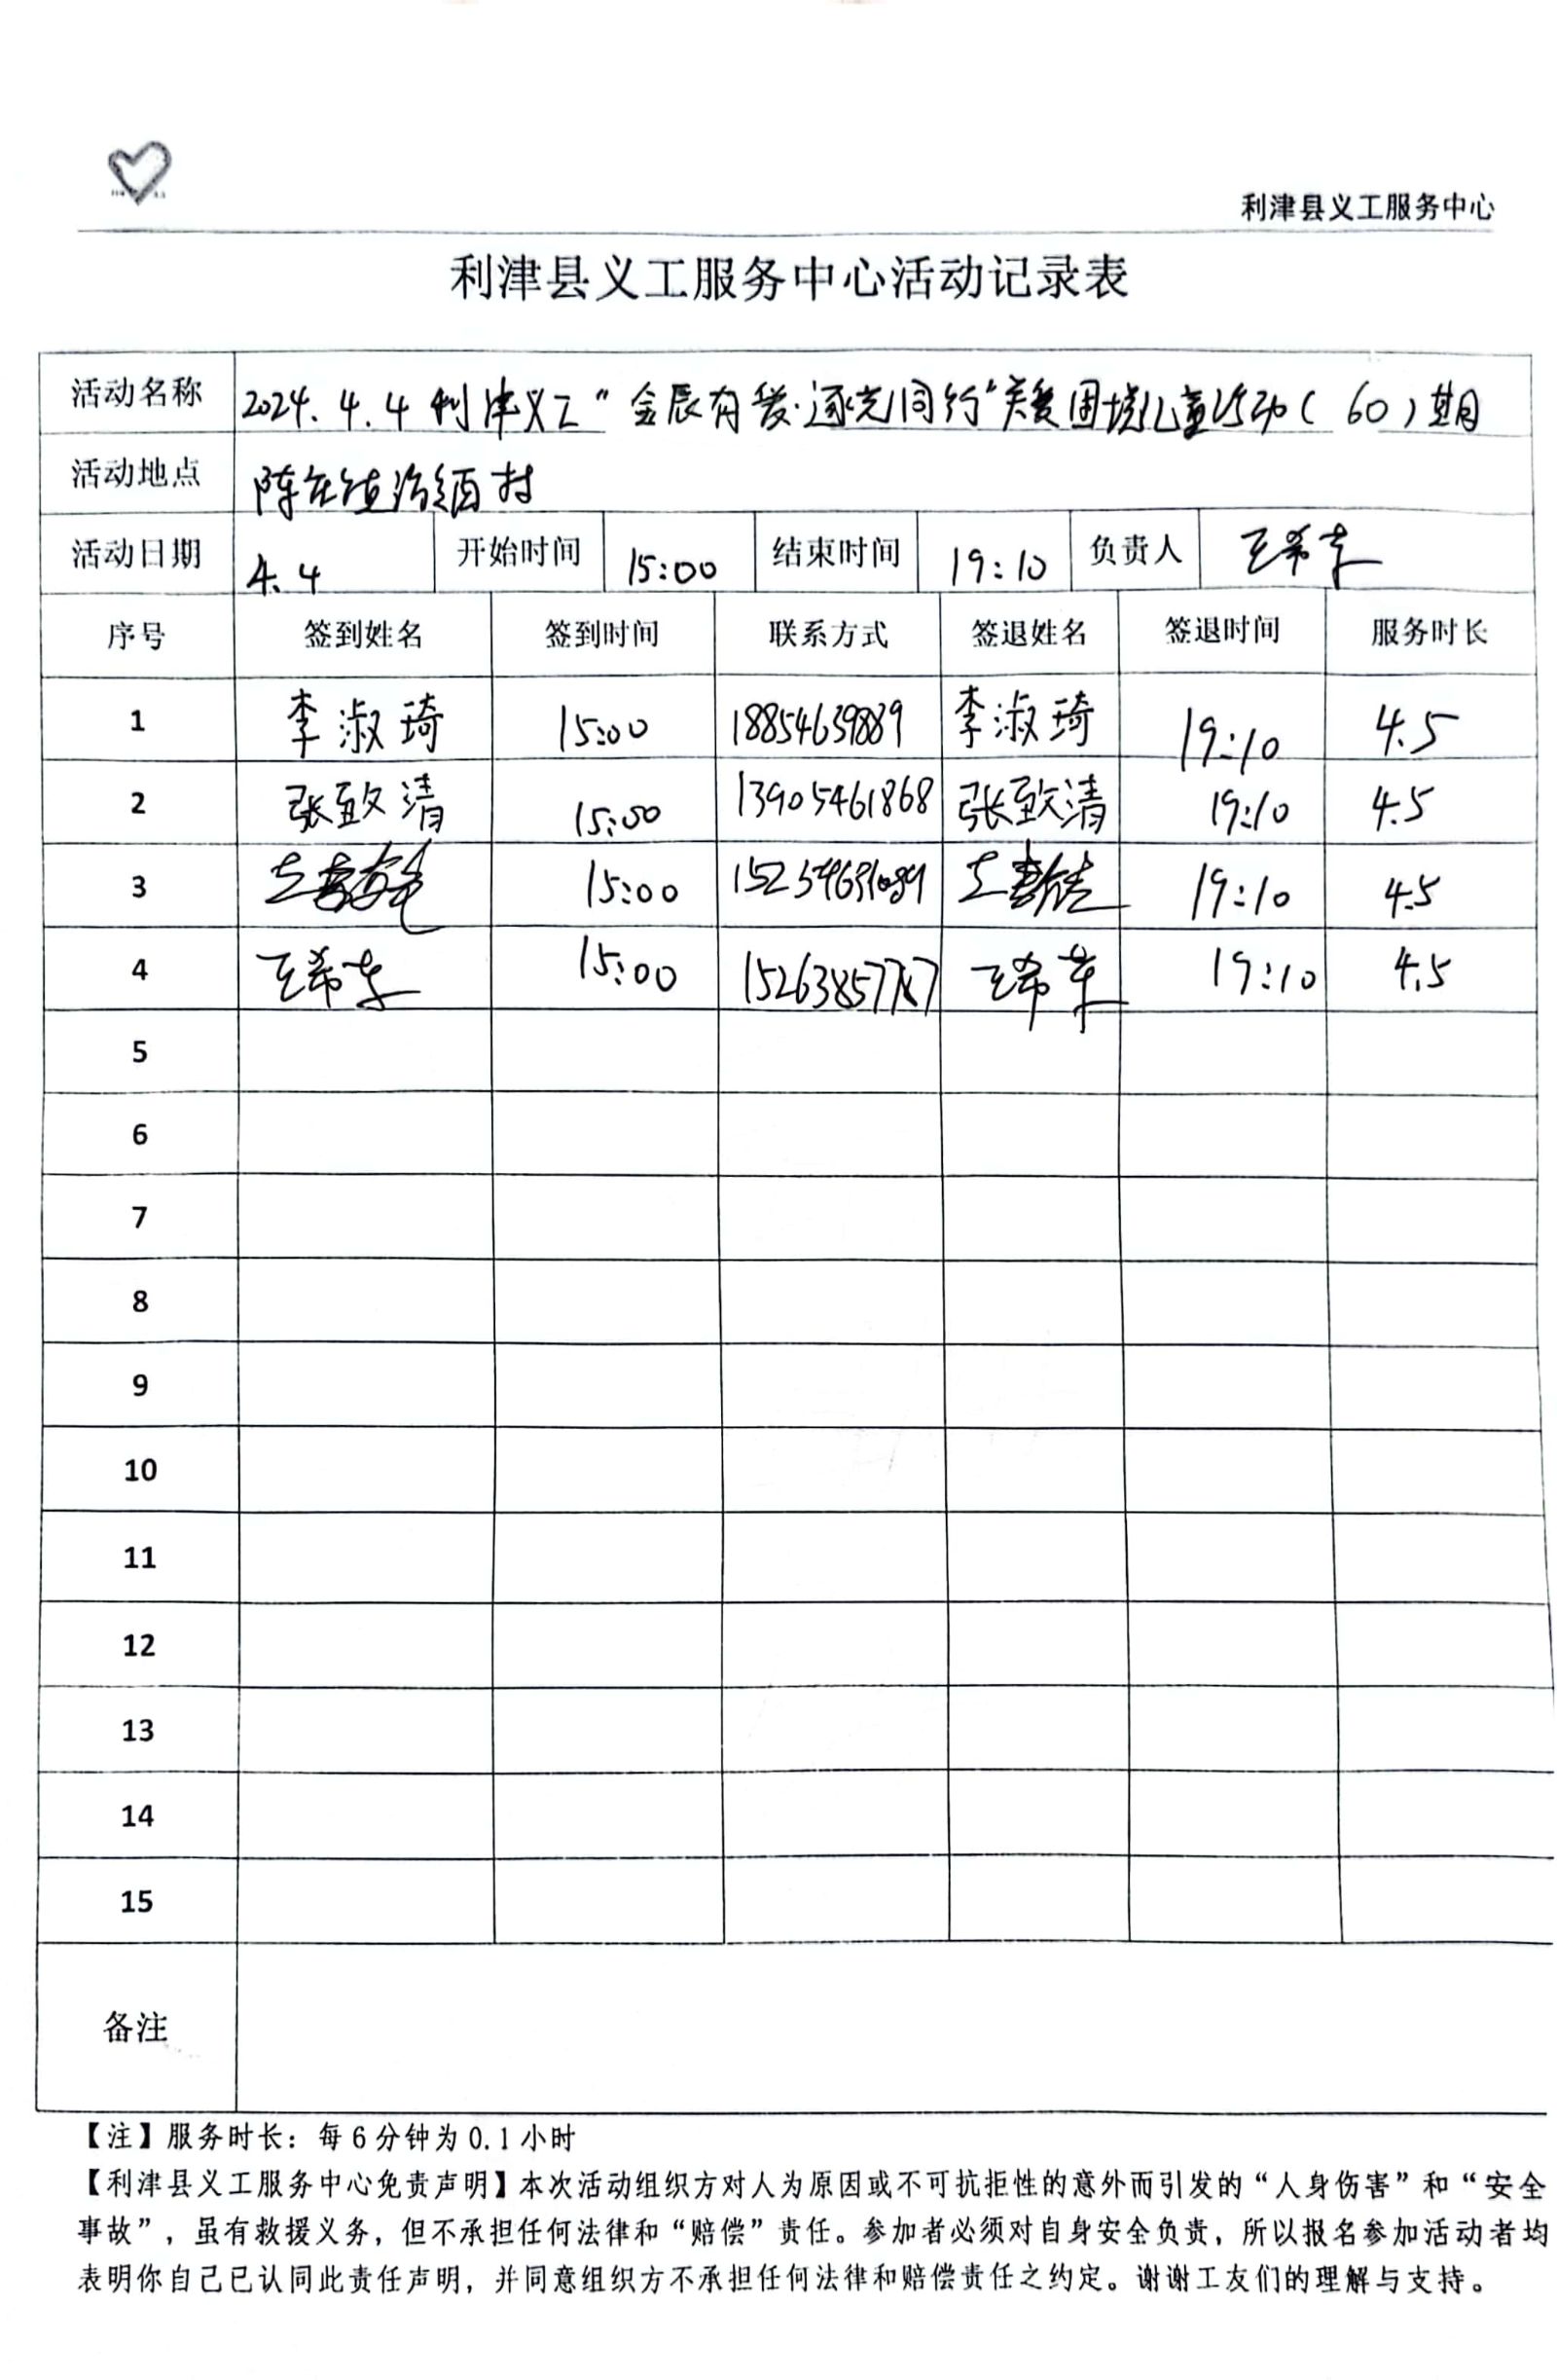 利津县义工服务中心
利津县义工服务中心活动记录表
活动名称 2024.4.4 利津义工“金辰有爱·逐光同行”关爱困境儿童活动(60)期
活动地点 陈庄镇 村
活动日期 4.4 开始时间 15:00 结束时间 19:10 负责人 王希
序号 签到姓名 签到时间 联系方式 签退姓名 签退时间 服务时长
1 李淑琦 15:00 18854639889 李淑琦 19:10 4.5
2 张致清 15:00 13905461868 张致清 19:10 4.5
3 15:00 19:10 4.5
4 王希 15:00 王希 19:10 4.5
5
6
7
8
9
10
11
12
13
14
15
备注
【注】服务时长：每6分钟为0.1小时
【利津县义工服务中心免责声明】本次活动组织方对人为原因或不可抗拒性的意外而引发的“人身伤害”和“安全
事故”，虽有救援义务，但不承担任何法律和“赔偿”责任。参加者必须对自身安全负责，所以报名参加活动者均
表明你自己已认同此责任声明，并同意组织方不承担任何法律和赔偿责任之约定。谢谢工友们的理解与支持。